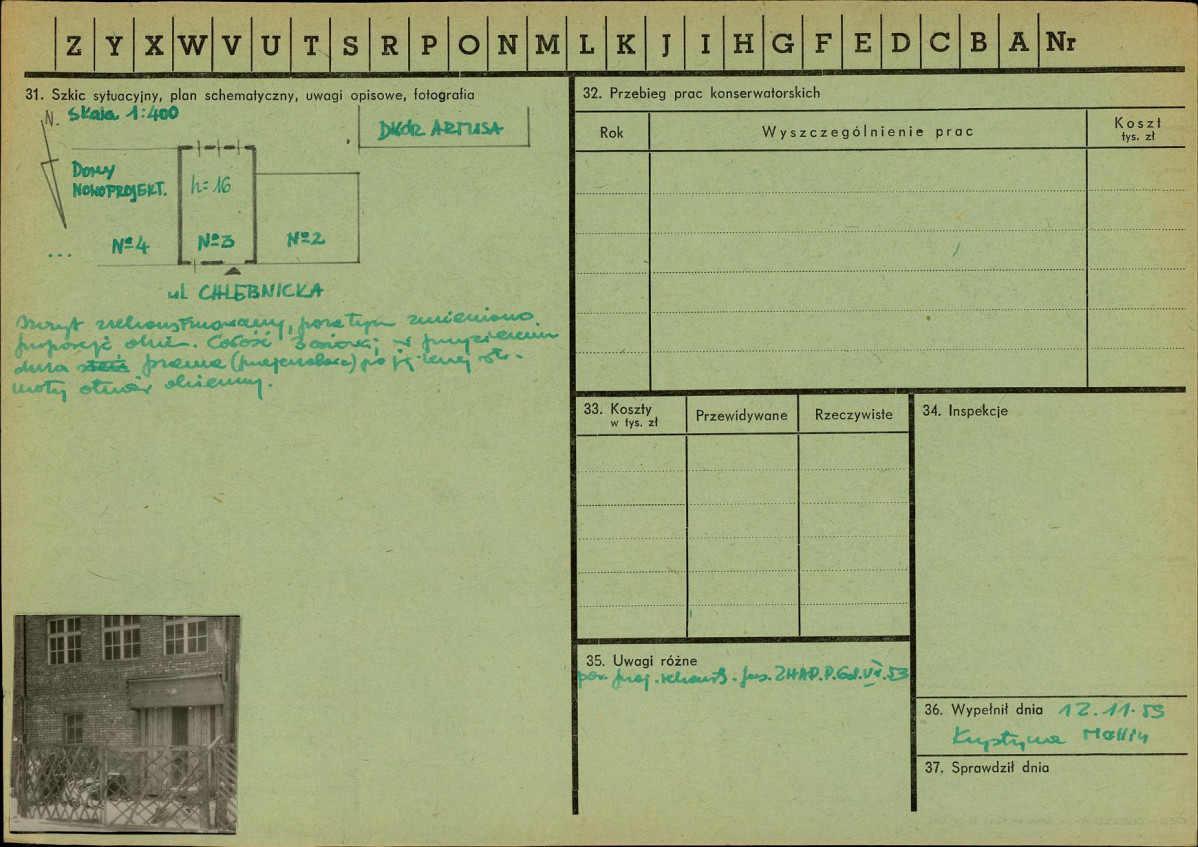 Z Y X W V U T S R P O N M L K J I H G F E D C B A Nr
31. Szkic sytuacyjny, plan schematyczny, uwagi opisowe, fotografia
N. Skala 1:400
DWÓR ARTUSA
DOMY
NOWOPROJEKT.
h=16
№4
№3
№2
...
ul. CHLEBNICKA
zrekonstruowany, poza tym zmieniono
proporcje okien. Całość 3 osiowa; w przyziemiu
duża brama (przejazdowa) po jej lewej st.
mały otwór okienny.
32. Przebieg prac konserwatorskich
Rok
Wyszczególnienie prac
Koszt
tys. zł
33. Koszty
w tys. zł
Przewidywane
Rzeczywiste
34. Inspekcje
35. Uwagi różne
por. proj. 53
36. Wypełnił dnia 12.11.53
Krystyna Mellin
37. Sprawdził dnia